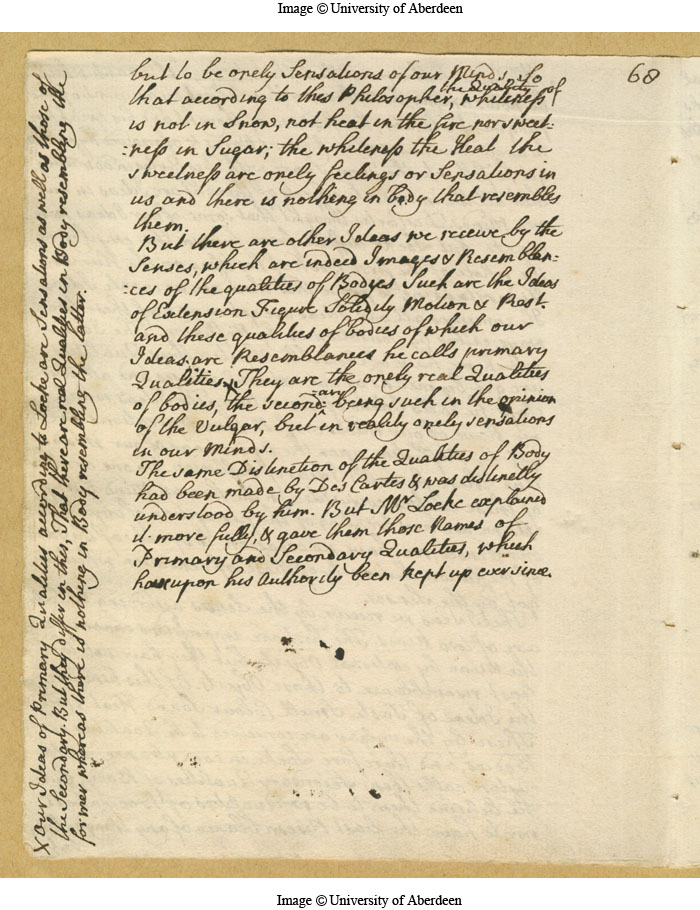 Image © University of Aberdeen
68
but to be onely Sensations of our Minds. So
the Quality of
that according to this Philosopher, whiteness
is not in Snow, not heat in the fire nor sweet:
:ness in Sugar; the whiteness the Heat the
sweetness are onely feelings or Sensations in
us and there is nothing in body that resembles
them.
But there are other Ideas we receive by the
Senses, which are indeed Images & Resemblan:
:ces of the qualities of Bodyes Such are the Ideas
of Extension Figure Solidity Motion & Rest.
and these qualities of bodies of which our
Ideas are Resemblances he calls primary
Qualities. X They are the onely real Qualities
of bodies, the second:ary being such in the opinion
of the Vulgar, but in reality onely sensations
in our Minds.
The same Distinction of the Qualities of Body
had been made by Des Cartes & was distinctly
understood by him. But Mr Locke explained
it more fully, & gave them those Names of
Primary and Secondary Qualities, which
have upon his Authority been kept up ever since.
X Our Ideas of Primary Qualities according to Locke are Sensations as well as those of
the Secondary. But they differ in this, That there are real Qualities in Body resembling the
former whereas there is nothing in Body resembling the latter.
Image © University of Aberdeen